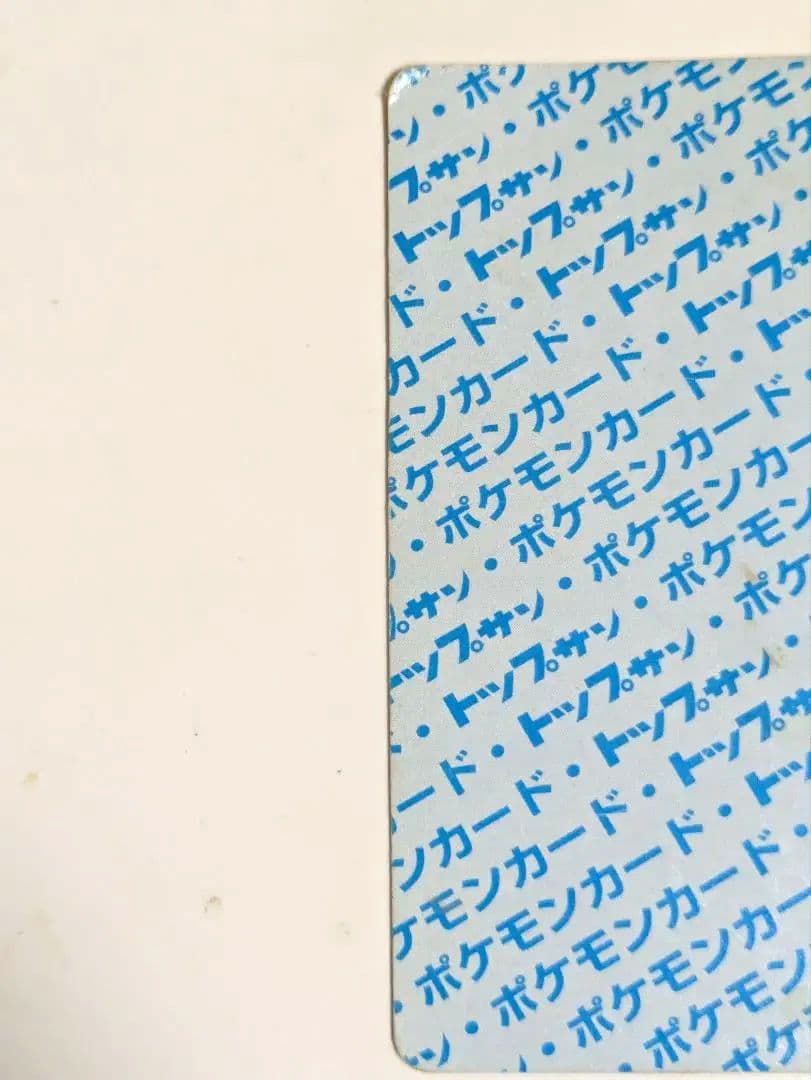 ン・ポケ
プサン・ポケモ
トップサン・ポケモン
ド・トップサン・ポケモン
カード・トップサン・ポケ
モンカード・トップサン・
ケモンカード・トップサ
・ポケモンカード・トッ
サン・ポケモンカード・
トップサン・ポケモンカー
・トップサン・ポケモン
ード・トップサン・ポケ
ンカード・トップサン・
ケモンカード・トップサ
・ポケモンカード・トッ
・ポケモンカード・
・ポケモンカー
・ポケモン
ポケ